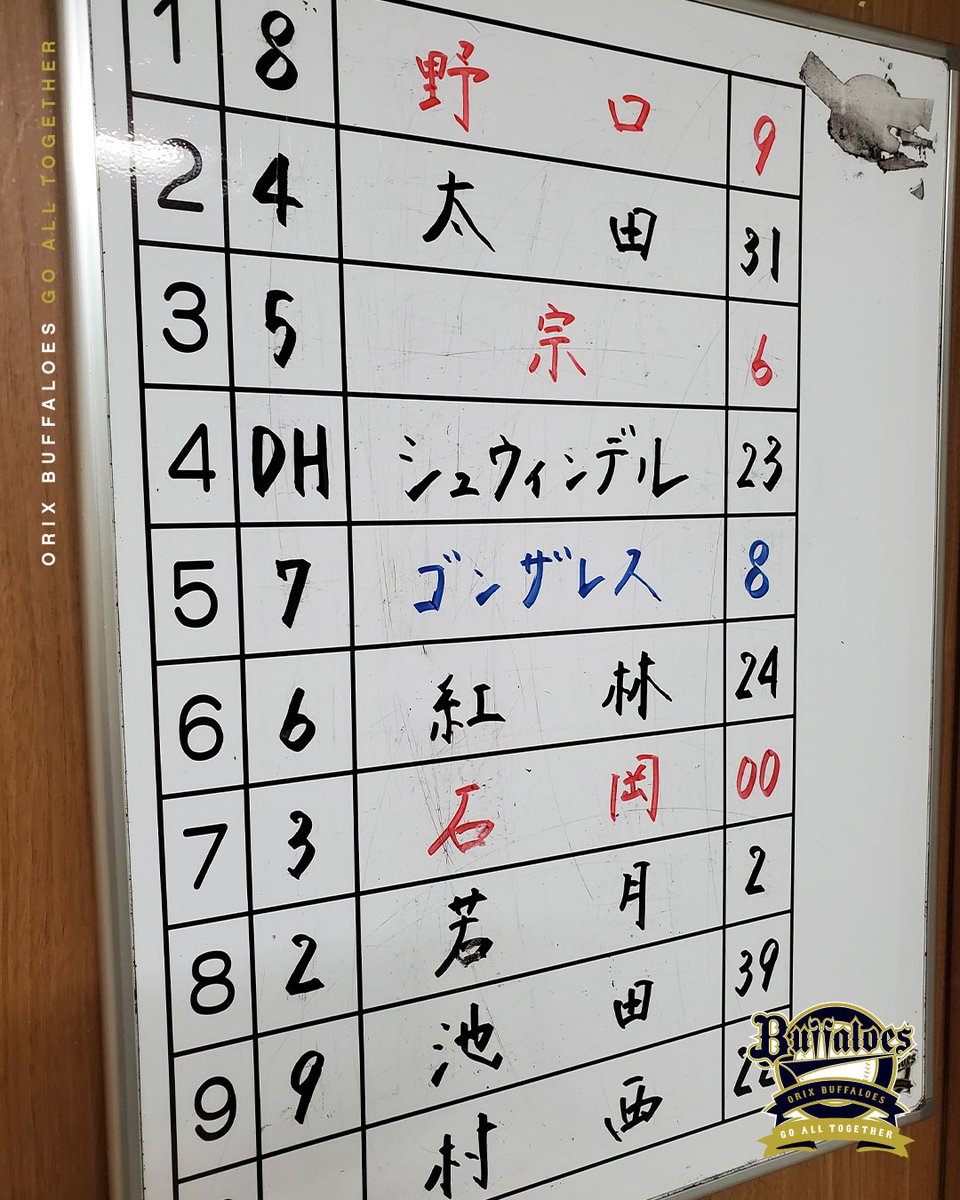 ORIX BUFFALOES GO ALL TOGETHER
1 8 野口 9
2 4 太田 31
3 5 宗 6
4 DH シュウィンデル 23
5 7 ゴンザレス 8
6 6 紅林 24
7 3 石岡 00
8 2 若月 2
9 9 池田 39
村西 22
Buffaloes
ORIX BUFFALOES
GO ALL TOGETHER